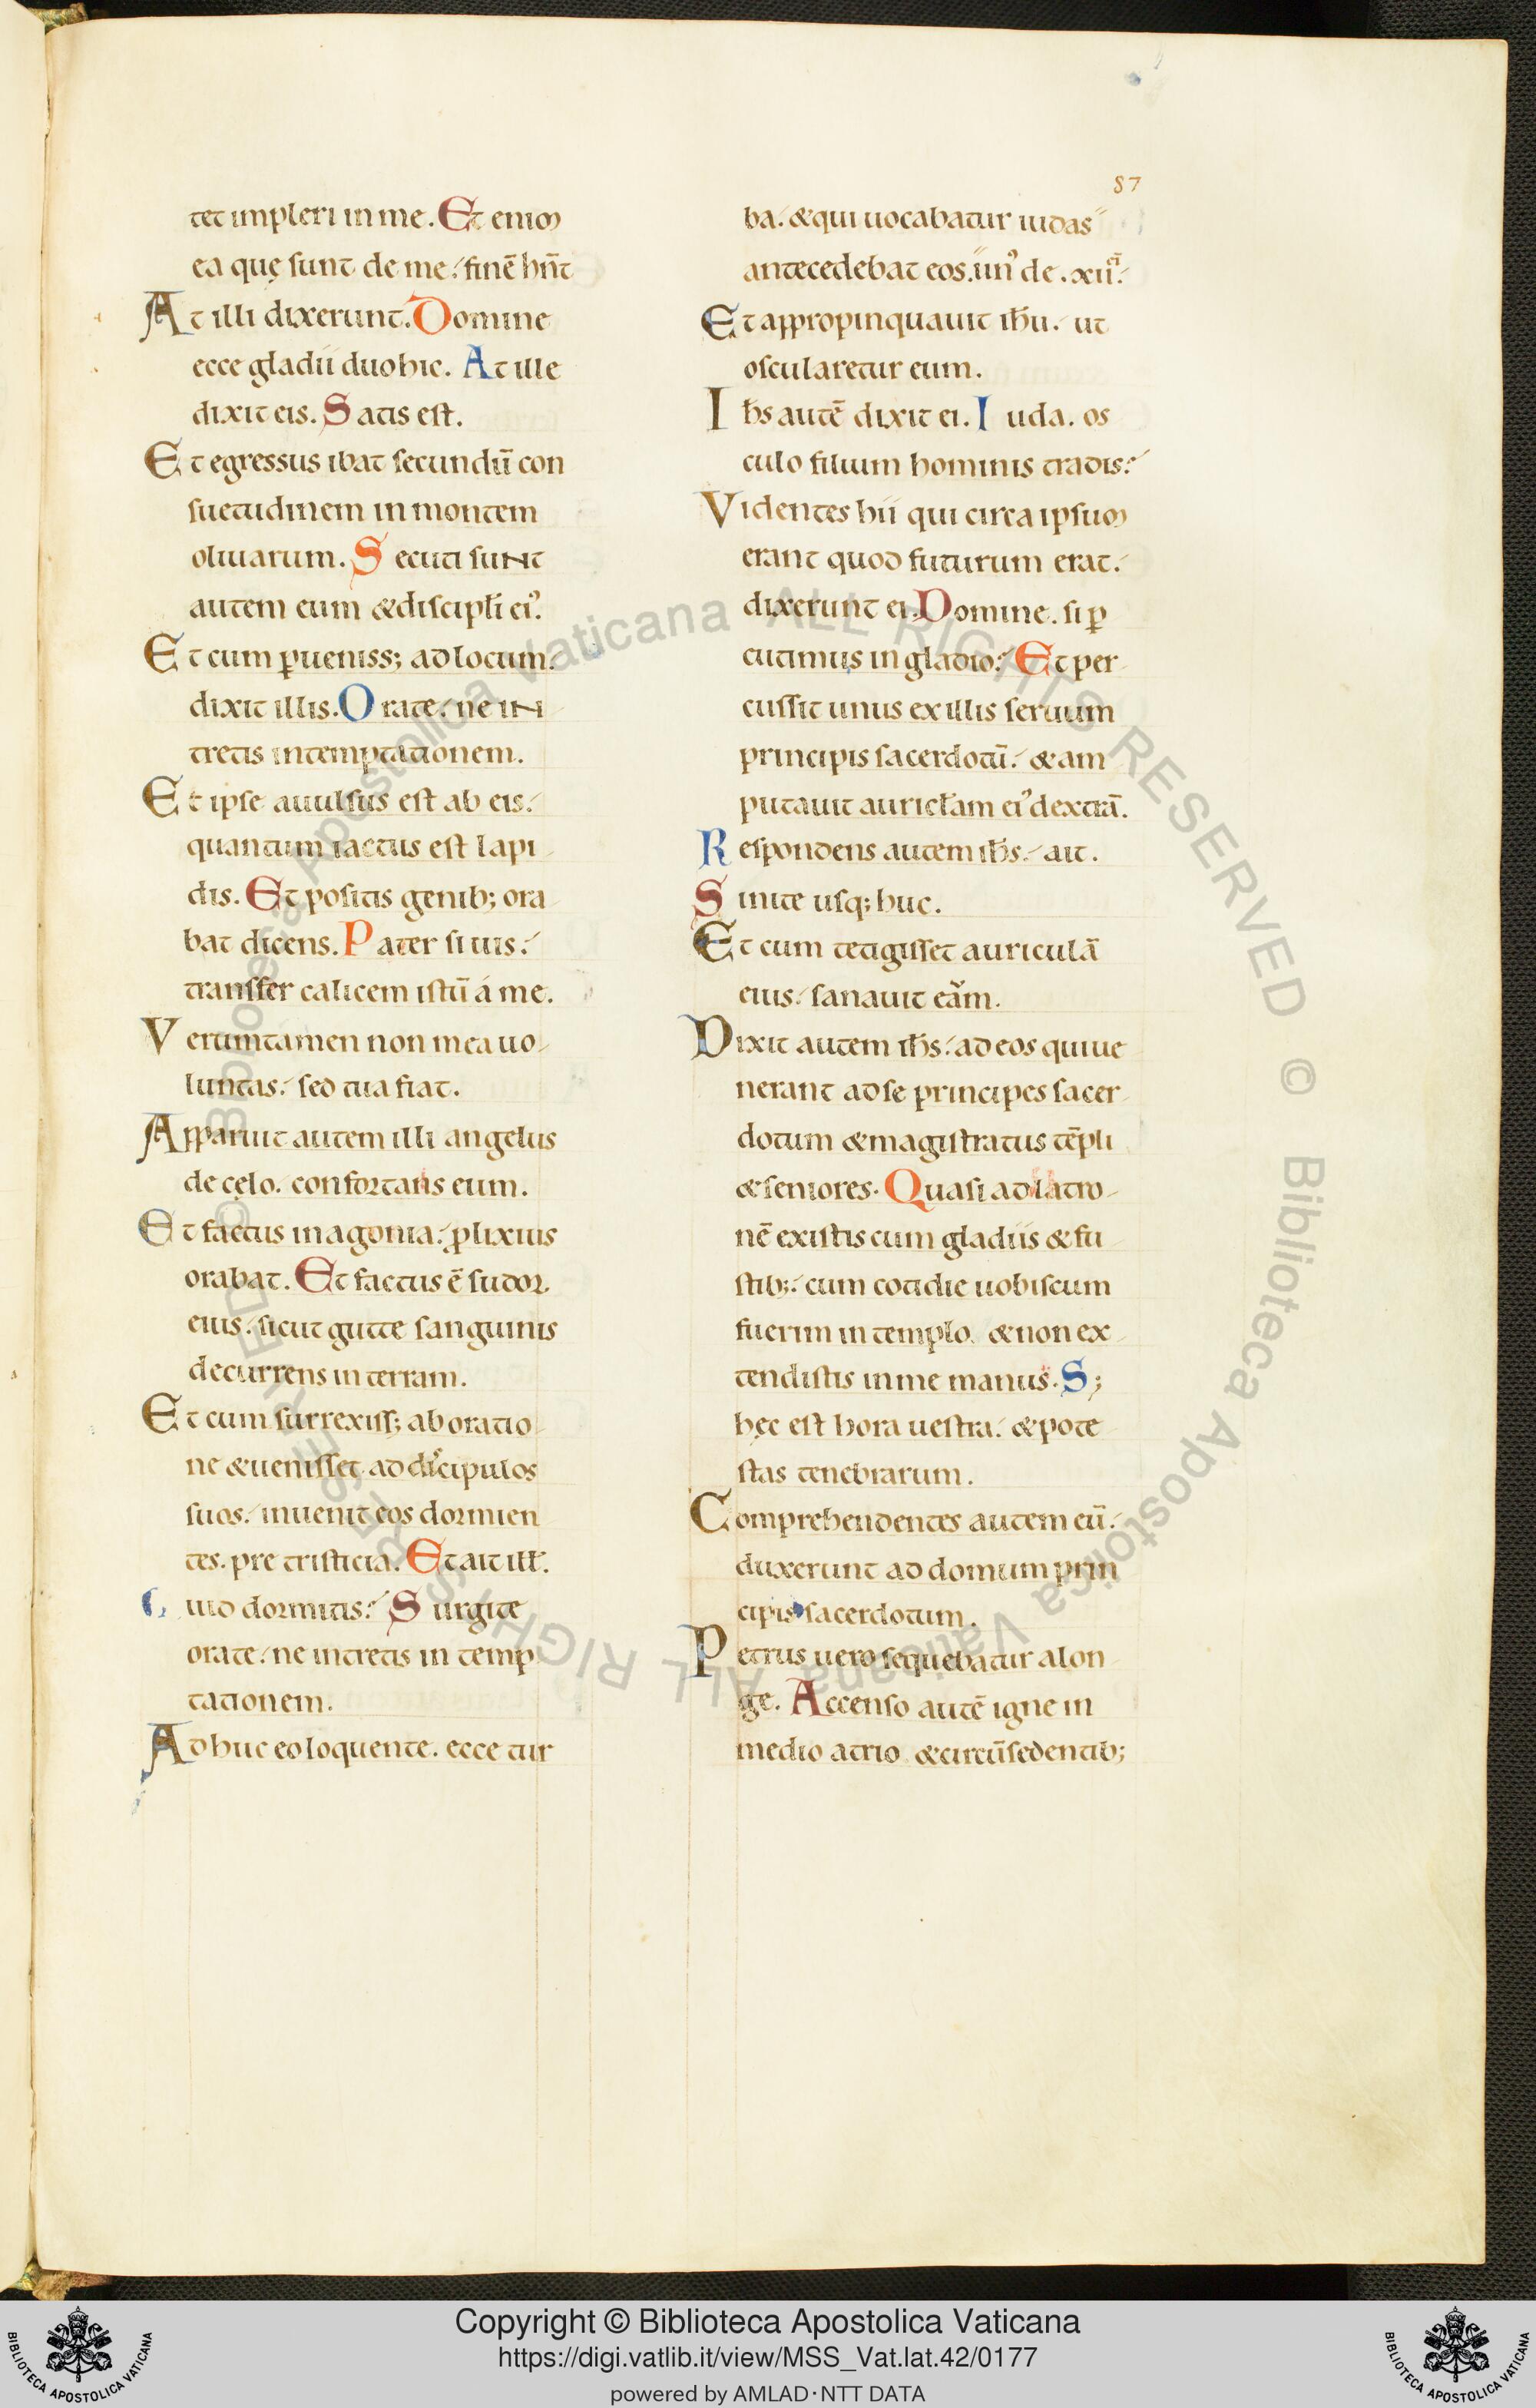 87
tet impleri in me. Et enim
ea quę sunt de me. finē hn̄t
At illi dixerunt. Domine
ecce gladii duo hic. At ille
dixit eis. Satis est.
Et egressus ibat secundū con
suetudinem in montem
oliuarum. Secuti sunt
autem eum & discipłi ei᾽.
Et cum ꝑueniss; ad locum.
dixit illis. Orate. ne in
tretis in temptationem.
Et ipse auulsus est ab eis.
quantum iactus est lapi
dis. Et positis genib; ora
bat dicens. Pater si uis.
transfer calicem istū á me.
Veruntamen non mea uo
luntas. sed tua fiat.
Apparuit autem illi angelus
de cęlo. confortans eum.
Et factus in agonia. ꝓlixius
orabat. Et factus ē sudor
eius. sicut gutte sanguinis
decurrens in terram.
Et cum surrexiss; ab oratio
ne & uenisset ad discipulos
suos. inuenit eos dormien
tes. pre tristicia. Et ait ilł.
Quid dormitis. Surgite
orate. ne intretis in temp
tationem.
Adhuc eo loquente. ecce tur
ba. & qui uocabatur iudas
antecedebat eos. un᾽ de. xii.
Et appropinquauit ihu̅. ut
oscularetur eum.
Ihs̅ autē dixit ei. Iuda. os
culo filium hominis tradis.
Videntes hii qui circa ipsum
erant quod futurum erat.
dixerunt ei. Domine. si ꝑ
cutimus in gladio. Et per
cussit unus ex illis seruum
principis sacerdotū. & am
putauit auricłam ei᾽ dextrā.
Respondens autem ihs̅. ait.
Sinite usq; huc.
Et cum tetigisset auriculā
eius. sanauit eam.
Dixit autem ihs̅. ad eos qui ue
nerant ad se principes sacer
dotum & magistratus tēpli
& seniores. Quasi ad latro
nē existis cum gladiis & fu
stib;. cum cotidie uobiscum
fuerim in templo. & non ex
tendistis in me manus. S;
hęc est hora uestra. & pote
stas tenebrarum.
Comprehendentes autem eū.
duxerunt ad domum prin
cipis sacerdotum.
Petrus uero sequebatur a lon
ge. Accenso autē igne in
medio atrio & circūsedentib;
Copyright © Biblioteca Apostolica Vaticana
https://digi.vatlib.it/view/MSS_Vat.lat.42/0177
powered by AMLAD·NTT DATA
BIBLIOTECA APOSTOLICA VATICANA
BIBLIOTECA APOSTOLICA VATICANA
© Biblioteca Apostolica Vaticana ALL RIGHTS RESERVED
© Biblioteca Apostolica Vaticana ALL RIGHTS RESERVED